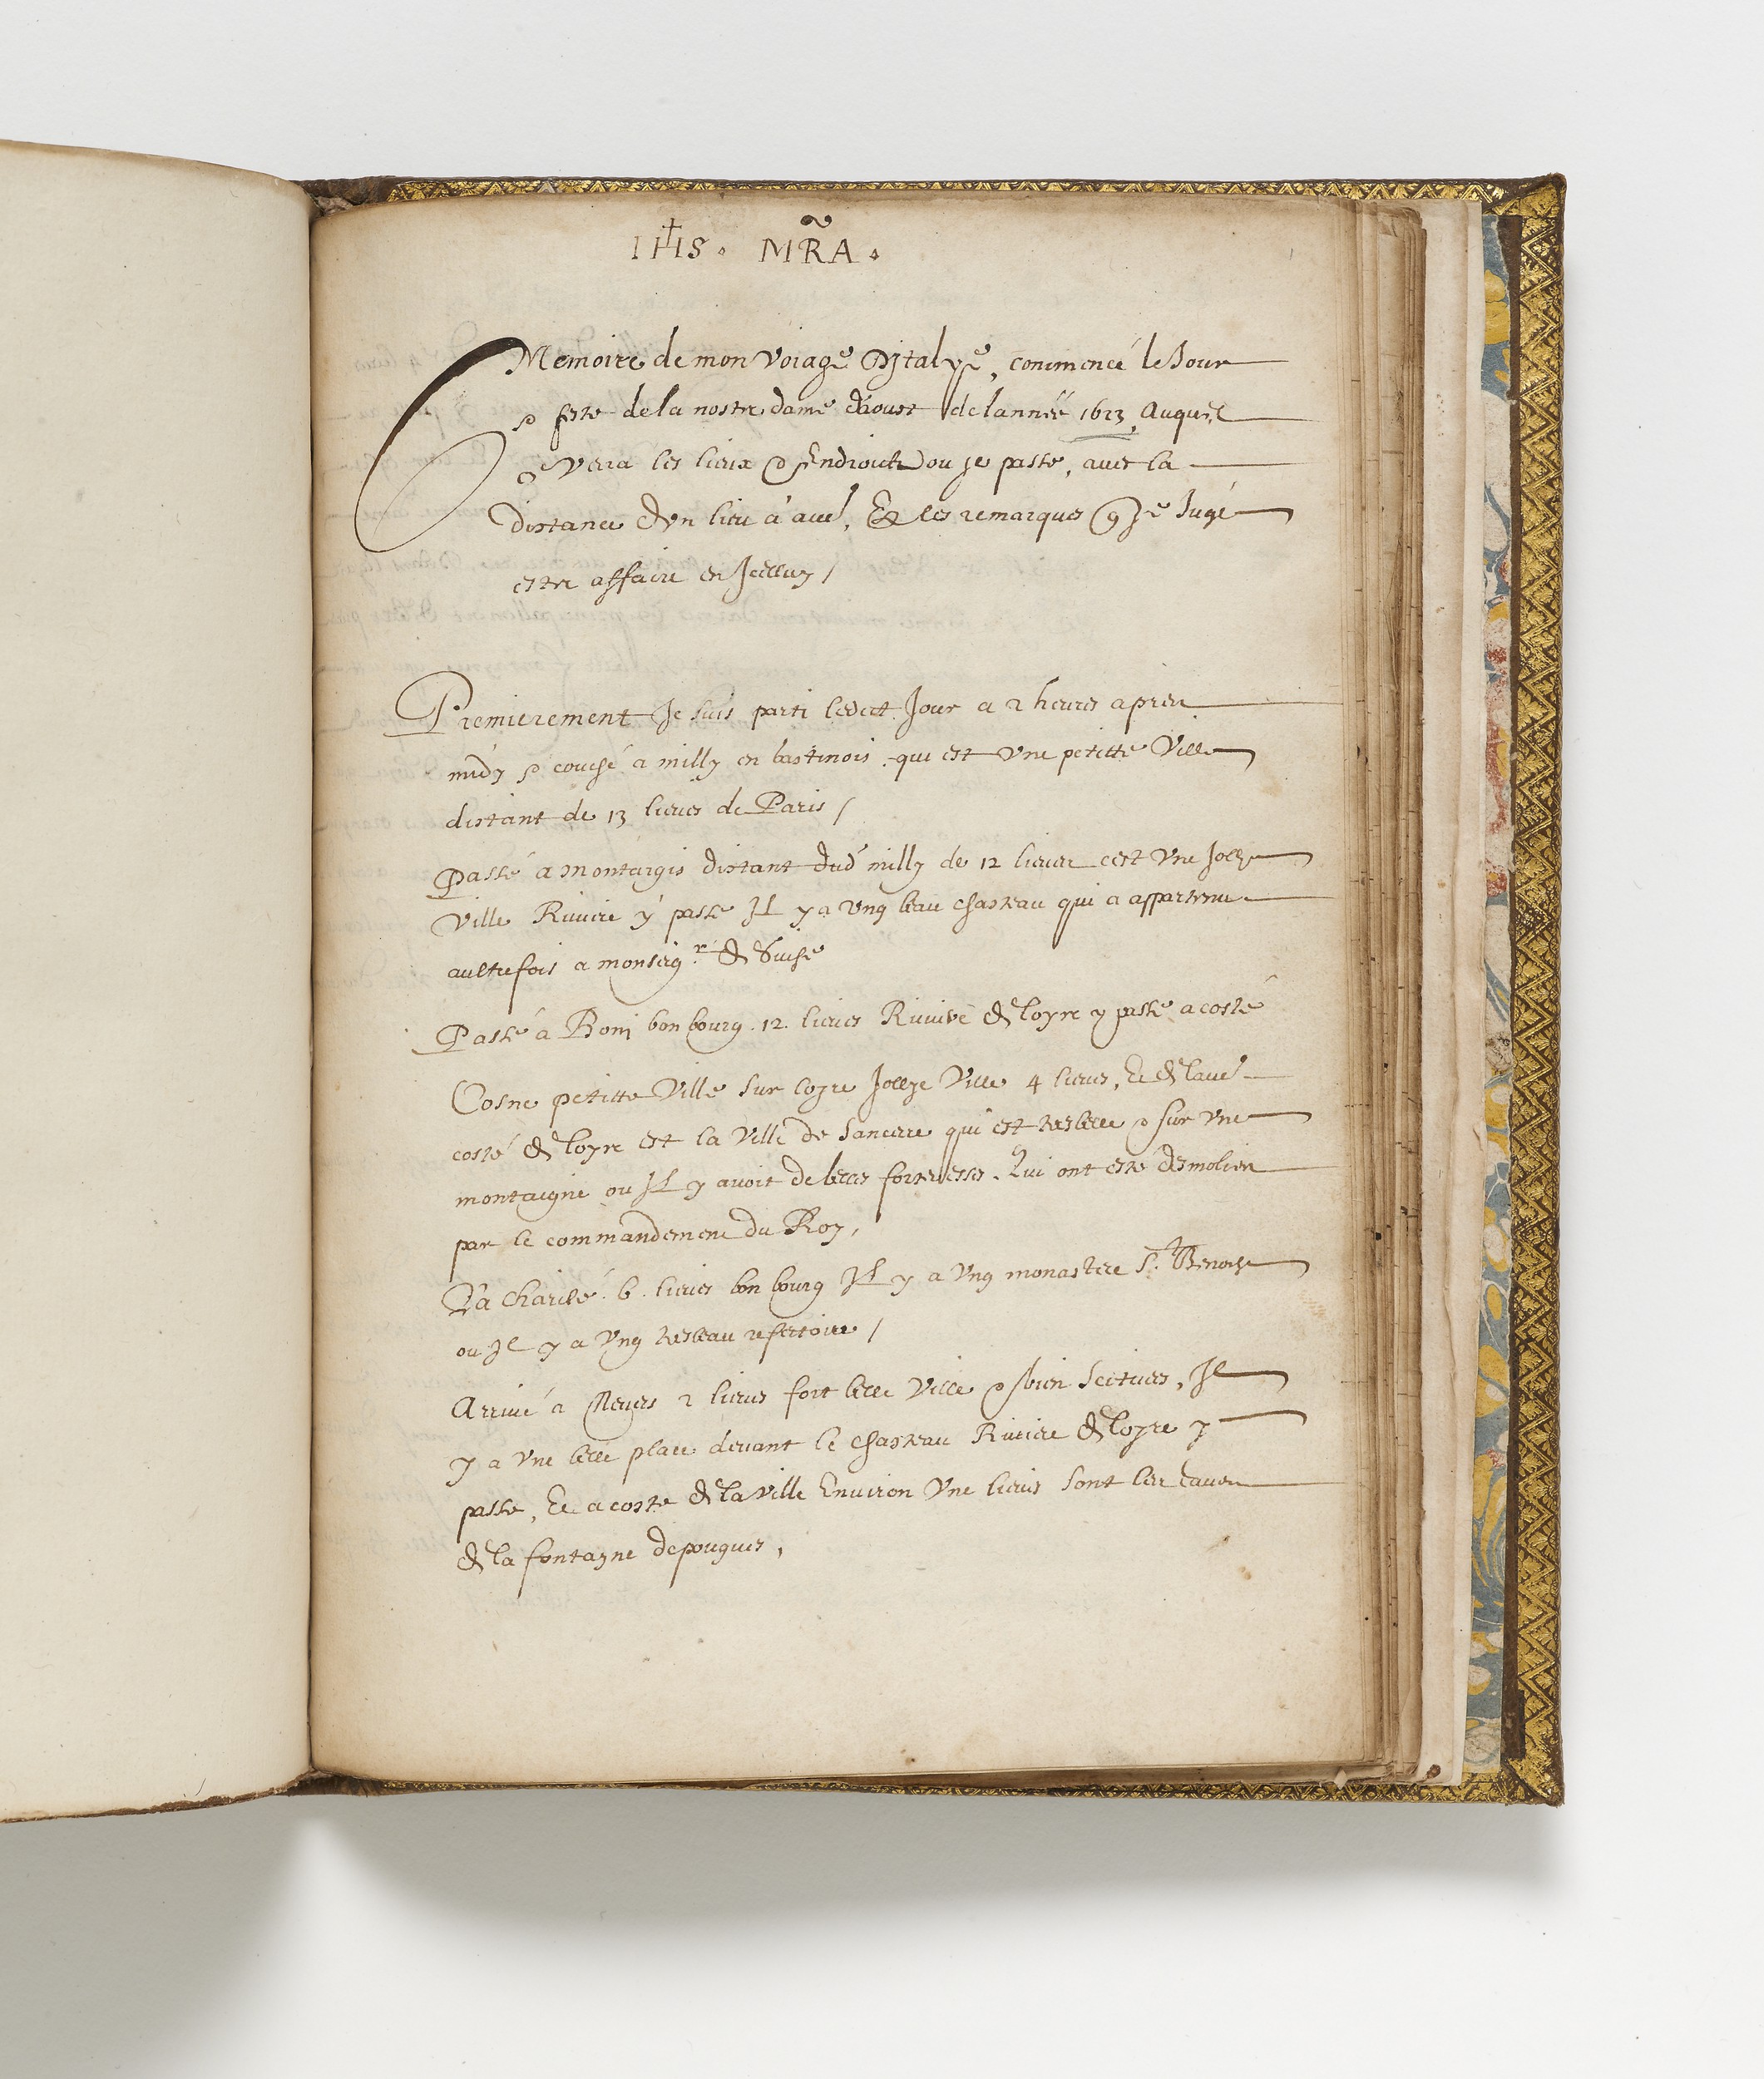 IHS . MR̃A .
1
Memoire de mon Voiage Ditalye, commencé le Jour
& feste de la nostre dame daoust de lannéé 1623, Auquel
on Vera les lieux & Endroicts ou je passe, avec la
distance dun lieu a aue', Et les remarques que Je Jugé
estre affaire en Jcelluy /
Premierement Je suis parti ledict Jour a 2 heures apres
midy & couché a milly en gastinois qui est Vne petitte Ville
distant de 13 lieues de Paris /
Passé a montargis distant dud' milly de 12 lieues cest Vne Jollye
Ville Riuiere y passe Jl y a Vng beau chasteau qui a appartenu
aultrefois a monseigr de Guise
Passé a Boni bon bourg . 12 . lieues Riuiere de loyre y passe a costé
Cosne petitte Ville sur loyre Jollye Ville 4 lieues, Et de laue'
costé de loyre est la Ville de Sancerre qui est tresbelle & sur Vne
montaigne ou Jl y auoit de belles forteresses. Qui ont esté desmolies
par le commandement du Roy,
La charité . 6 . lieues bon bourg Jl y a Vng monastere St. Benoist
ou Jl y a Vng tresbeau refectoire /
Arriué a Neuers 2 lieues fort belle Ville & bien scituees, Jl
y a Vne belle place deuant le chasteau Riuiere de loyre y
passe, Et a coste de la Ville Enuiron Vne lieues sont les eaues
de la fontayne de pougues,